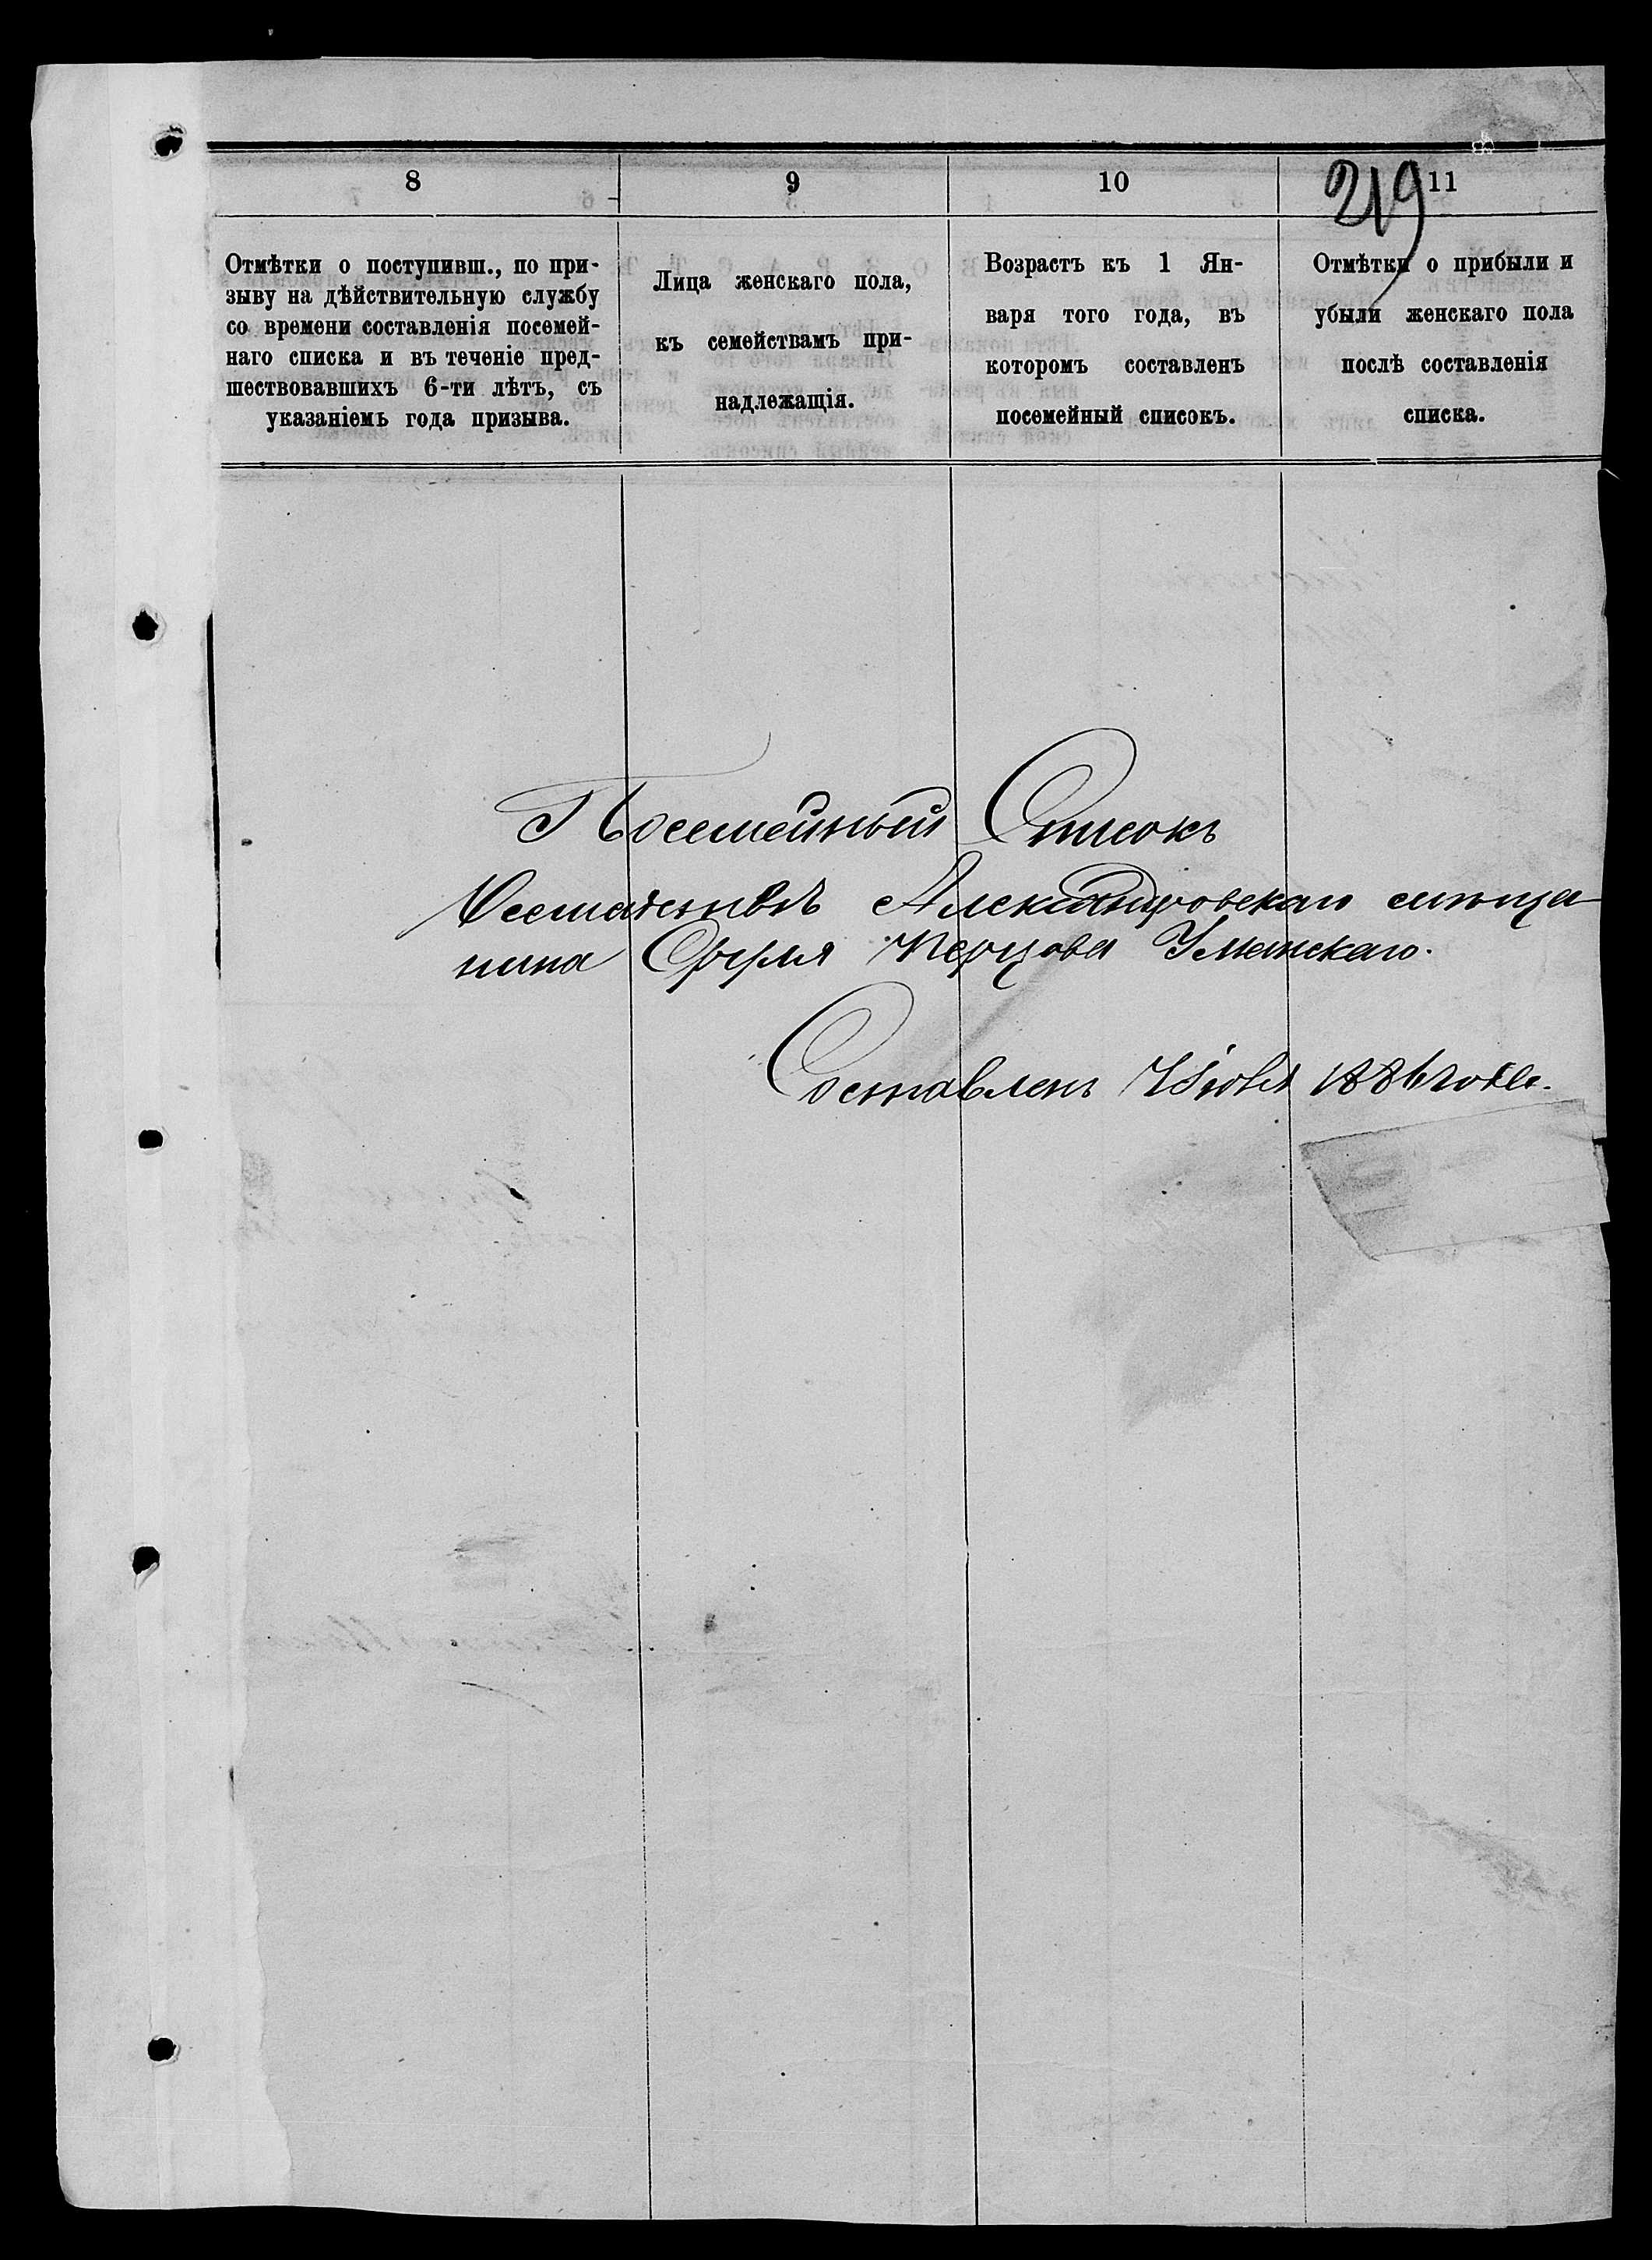 219
8 9 10 11
Отмѣтки о поступивш., по при-
зыву на дѣйствительную службу
со времени составленія посемей-
наго списка и въ теченіе пред-
шествовавшихъ 6-ти лѣтъ, съ
указаніемъ года призыва.
Лица женскаго пола,
къ семействамъ при-
надлежащія.
Возрастъ къ 1 Ян-
варя того года, въ
которомъ составленъ
посемейный списокъ.
Отмѣтки о прибыли и
убыли женскаго пола
послѣ составленія
списка.
Посемейный Списокъ
Александровскаго мѣща
нина Перцова Уманскаго.
Составленъ 1886 года.